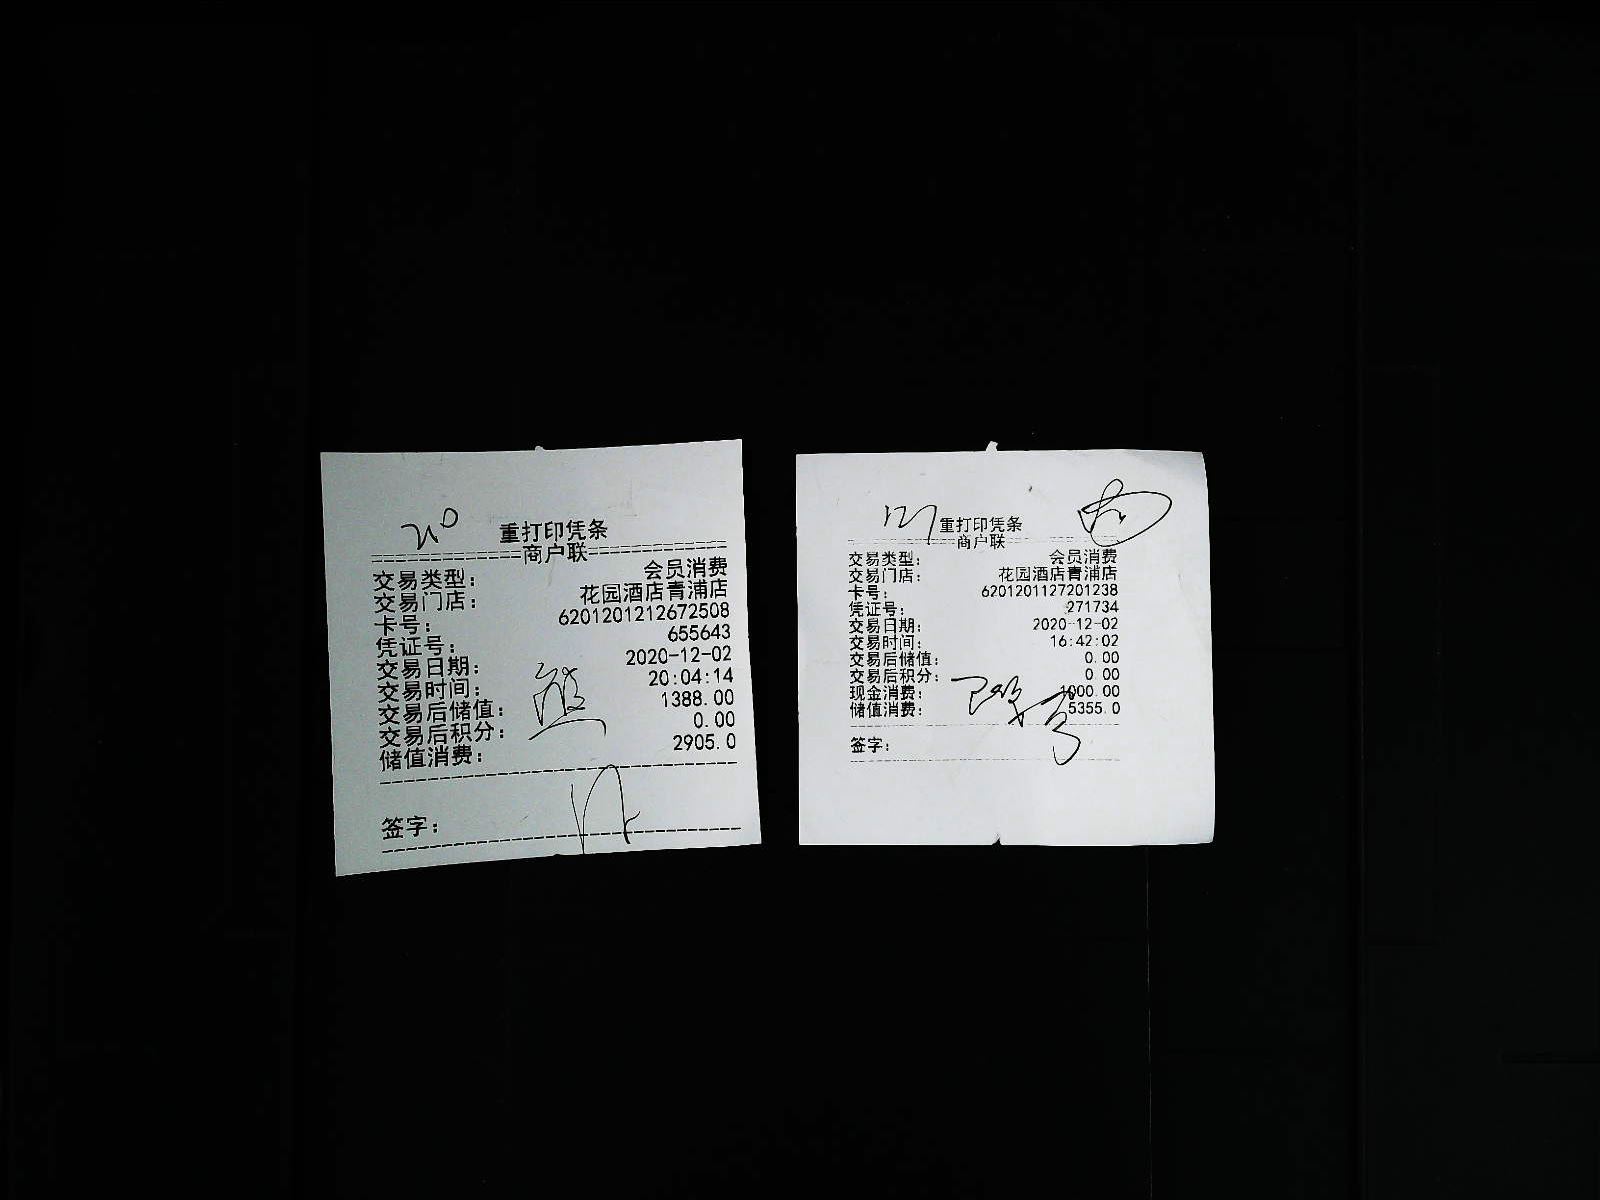 重打印凭条
商户联
交易类型： 会员消费
交易门店： 花园酒店青浦店
卡号： 6201201212672508
凭证号： 655643
交易日期： 2020-12-02
交易时间： 20:04:14
交易后储值： 1388.00
交易后积分： 0.00
储值消费： 2905.0
签字：
127
重打印凭条
商户联
交易类型： 会员消费
交易门店： 花园酒店青浦店
卡号： 6201201127201238
凭证号： 271734
交易日期： 2020-12-02
交易时间： 16:42:02
交易后储值： 0.00
交易后积分： 0.00
现金消费： 1000.00
储值消费： 5355.0
签字：